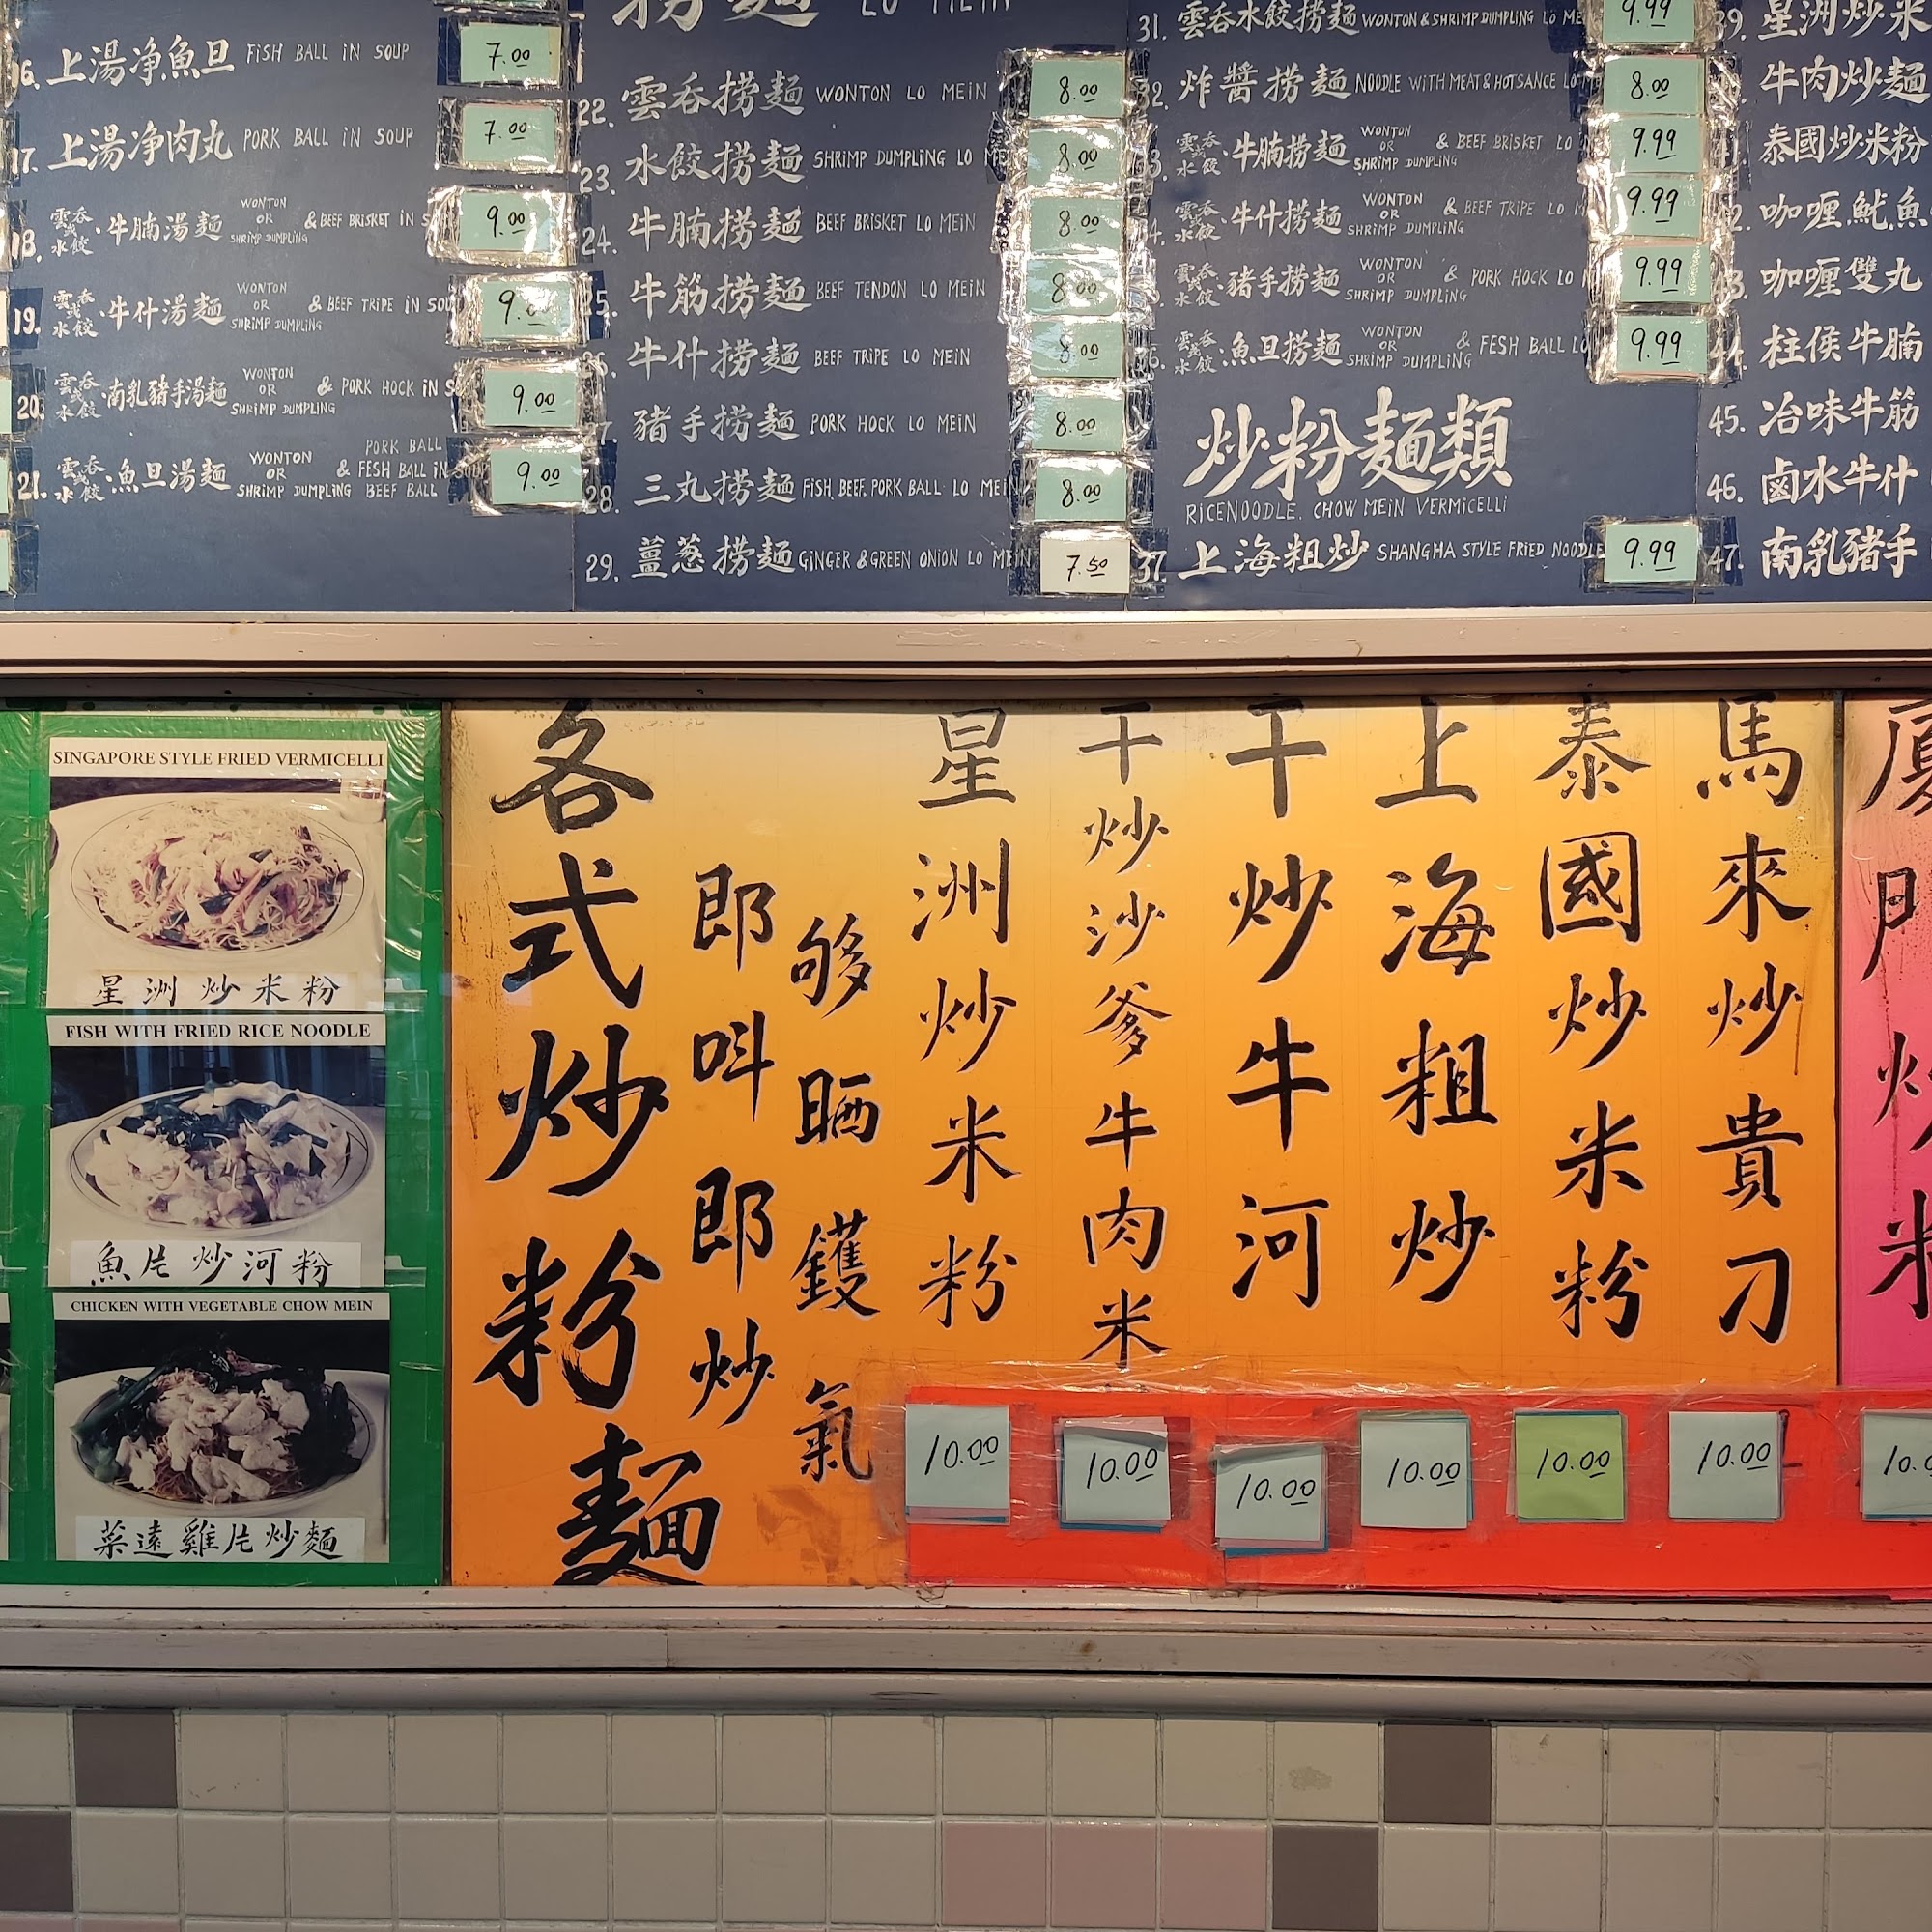 16. 上湯净魚旦 FISH BALL IN SOUP 7.00
17. 上湯净肉丸 PORK BALL IN SOUP 7.00
18. 雲呑或水餃·牛腩湯麵 WONTON OR SHRIMP DUMPLING & BEEF BRISKET IN 9.00
19. 雲呑或水餃·牛什湯麵 WONTON OR SHRIMP DUMPLING & BEEF TRIPE IN SOU 9.
20. 雲呑或水餃·南乳豬手湯麵 WONTON OR SHRIMP DUMPLING & PORK HOCK IN 9.00
21. 雲呑或水餃·魚旦湯麵 WONTON OR SHRIMP DUMPLING & PORK BALL FESH BALL IN SOUP BEEF BALL 9.00
撈麵 LO MEIN
22. 雲呑撈麵 WONTON LO MEIN 8.00
23. 水餃撈麵 SHRIMP DUMPLING LO ME 8.00
24. 牛腩撈麵 BEEF BRISKET LO MEIN 8.00
25. 牛筋撈麵 BEEF TENDON LO MEIN 8.00
26. 牛什撈麵 BEEF TRIPE LO MEIN 8.00
27 豬手撈麵 PORK HOCK LO MEIN 8.00
28. 三丸撈麵 FISH. BEEF. PORK BALL LO MEIN 8.00
29. 薑葱撈麵 GINGER & GREEN ONION LO MEIN 7.50
31. 雲呑水餃撈麵 WONTON & SHRIMP DUMPLING LO ME 9.99
32. 炸醬撈麵 NOODLE WITH MEAT & HOTSANCE LO 8.00
33. 雲呑或水餃·牛腩撈麵 WONTON OR SHRIMP DUMPLING & BEEF BRISKET LO 9.99
34. 雲呑或水餃·牛什撈麵 WONTON OR SHRIMP DUMPLING & BEEF TRIPE LO M 9.99
雲呑或水餃·豬手撈麵 WONTON OR SHRIMP DUMPLING & PORK HOCK LO 9.99
36. 雲呑或水餃·魚旦撈麵 WONTON OR SHRIMP DUMPLING & FESH BALL LO 9.99
炒粉麵類
RICENOODLE. CHOW MEIN VERMICELLI
37. 上海粗炒 SHANGHA STYLE FRIED NOODLE 9.99
39. 星洲炒米
牛肉炒麵
泰國炒米粉
咖喱魷魚
咖喱雙丸
柱侯牛腩
45. 冶味牛筋
46. 鹵水牛什
47. 南乳豬手
SINGAPORE STYLE FRIED VERMICELLI
星洲炒米粉
FISH WITH FRIED RICE NOODLE
魚片炒河粉
CHICKEN WITH VEGETABLE CHOW MEIN
菜遠雞片炒麵
各式炒粉麵
即呌即炒
够晒鑊氣
星洲炒米粉 10.00
干炒沙爹牛肉米 10.00
干炒牛河 10.00
上海粗炒 10.00
泰國炒米粉 10.00
馬來炒貴刁 10.00
厦門炒米 10.0